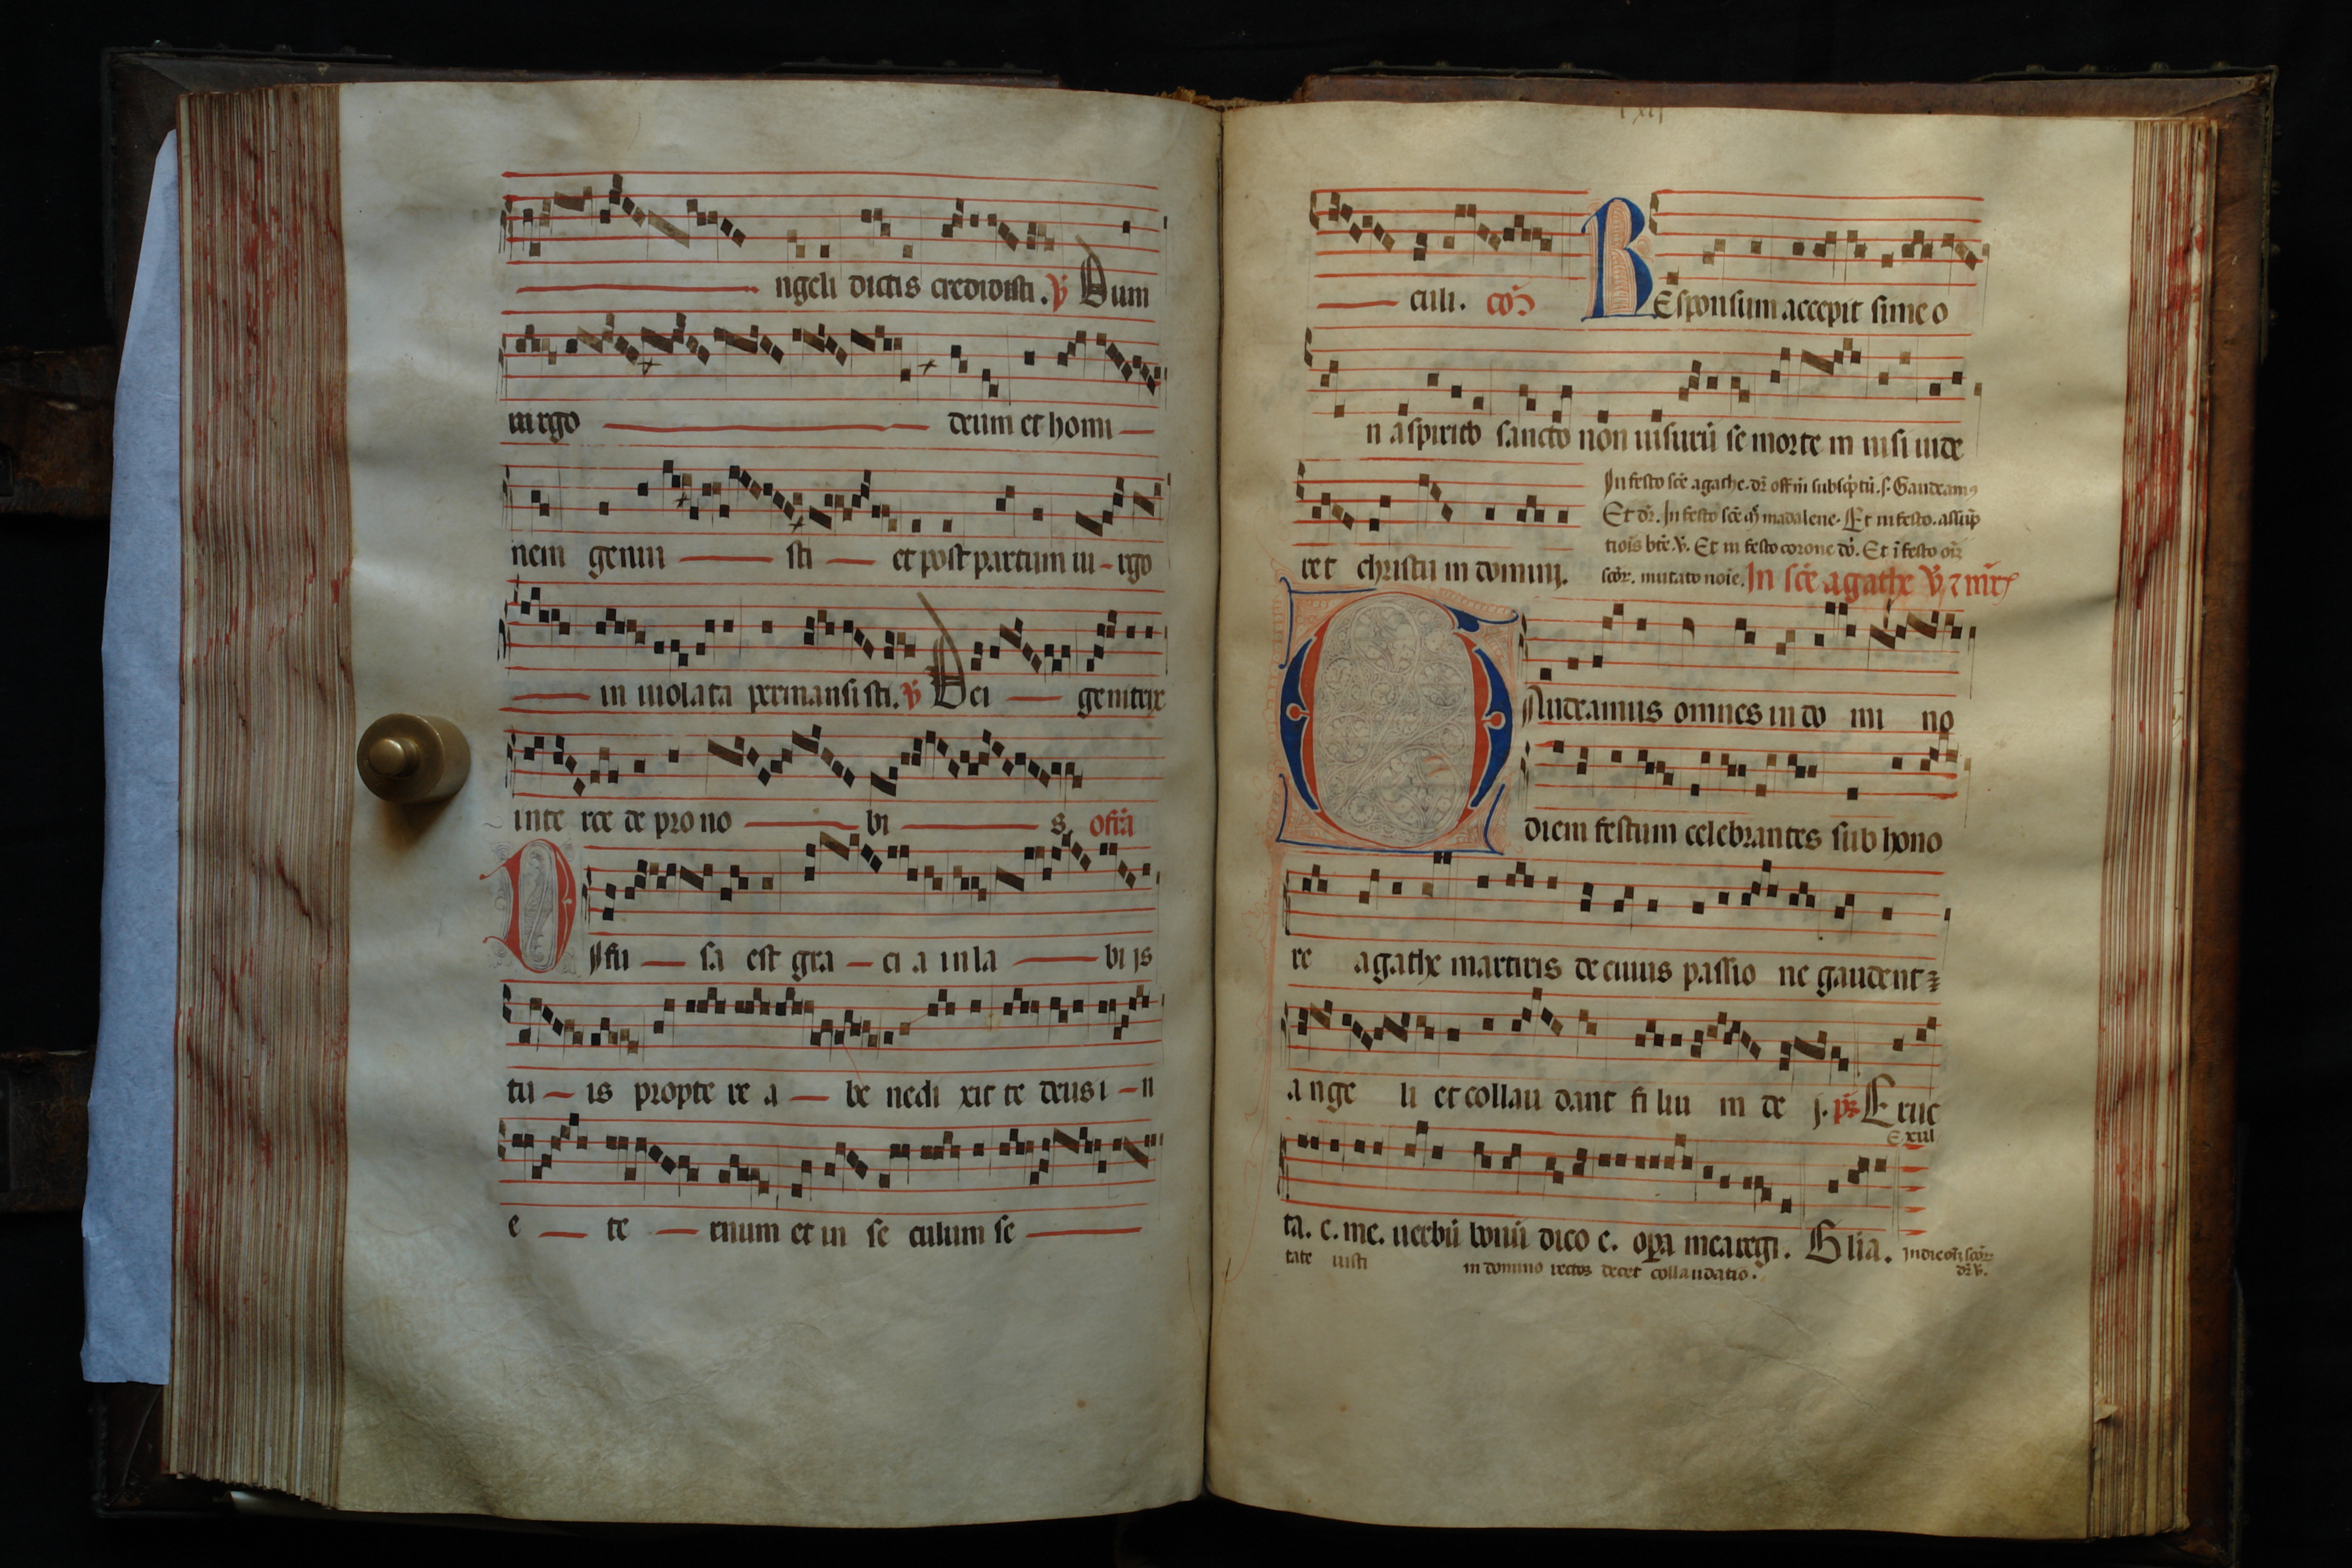 ngeli dictis credidisti. ℣ Dum
uirgo deum et homi
nem genui sti et post partum ui rgo
in uiolata permansisti. ℣ Dei genitrix
inte rce de pro no bi s. offr̄a
DIffu sa est gra ci a in la bi is
tu is propte re a be nedi xit te deus i n
e te rnum et in se culum se
lxij
culi. cōō
REsponsum accepit sime o
n a spiritu sancto non uisurū se morte m nisi uide
ret christū m domini.
In festo scē agathe. dr̄ offm̄ subscptū. s. Gaudeamus
Et dr̄. In festo scē m̄ madalene. Et in festo. assūp
tiois btē v̄. Et in festo corone dn̄. Et ī festo oīz
scōr. mutato noīe. In scē agathe v̄ ⁊ mr̄
GAudeamus omnes in do mi no
diem festum celebrantes sub hono
re agathe martiris de cuius passio ne gaudent
ange li et collau dant fi liū m de j. ps Eruc
Exul
ta. c. me. uerbū bonū dico e. opa mea regi. Glia. In die oīz scōr
tate iusti in domino rectos decet collaudatio. dr̄ v̄.